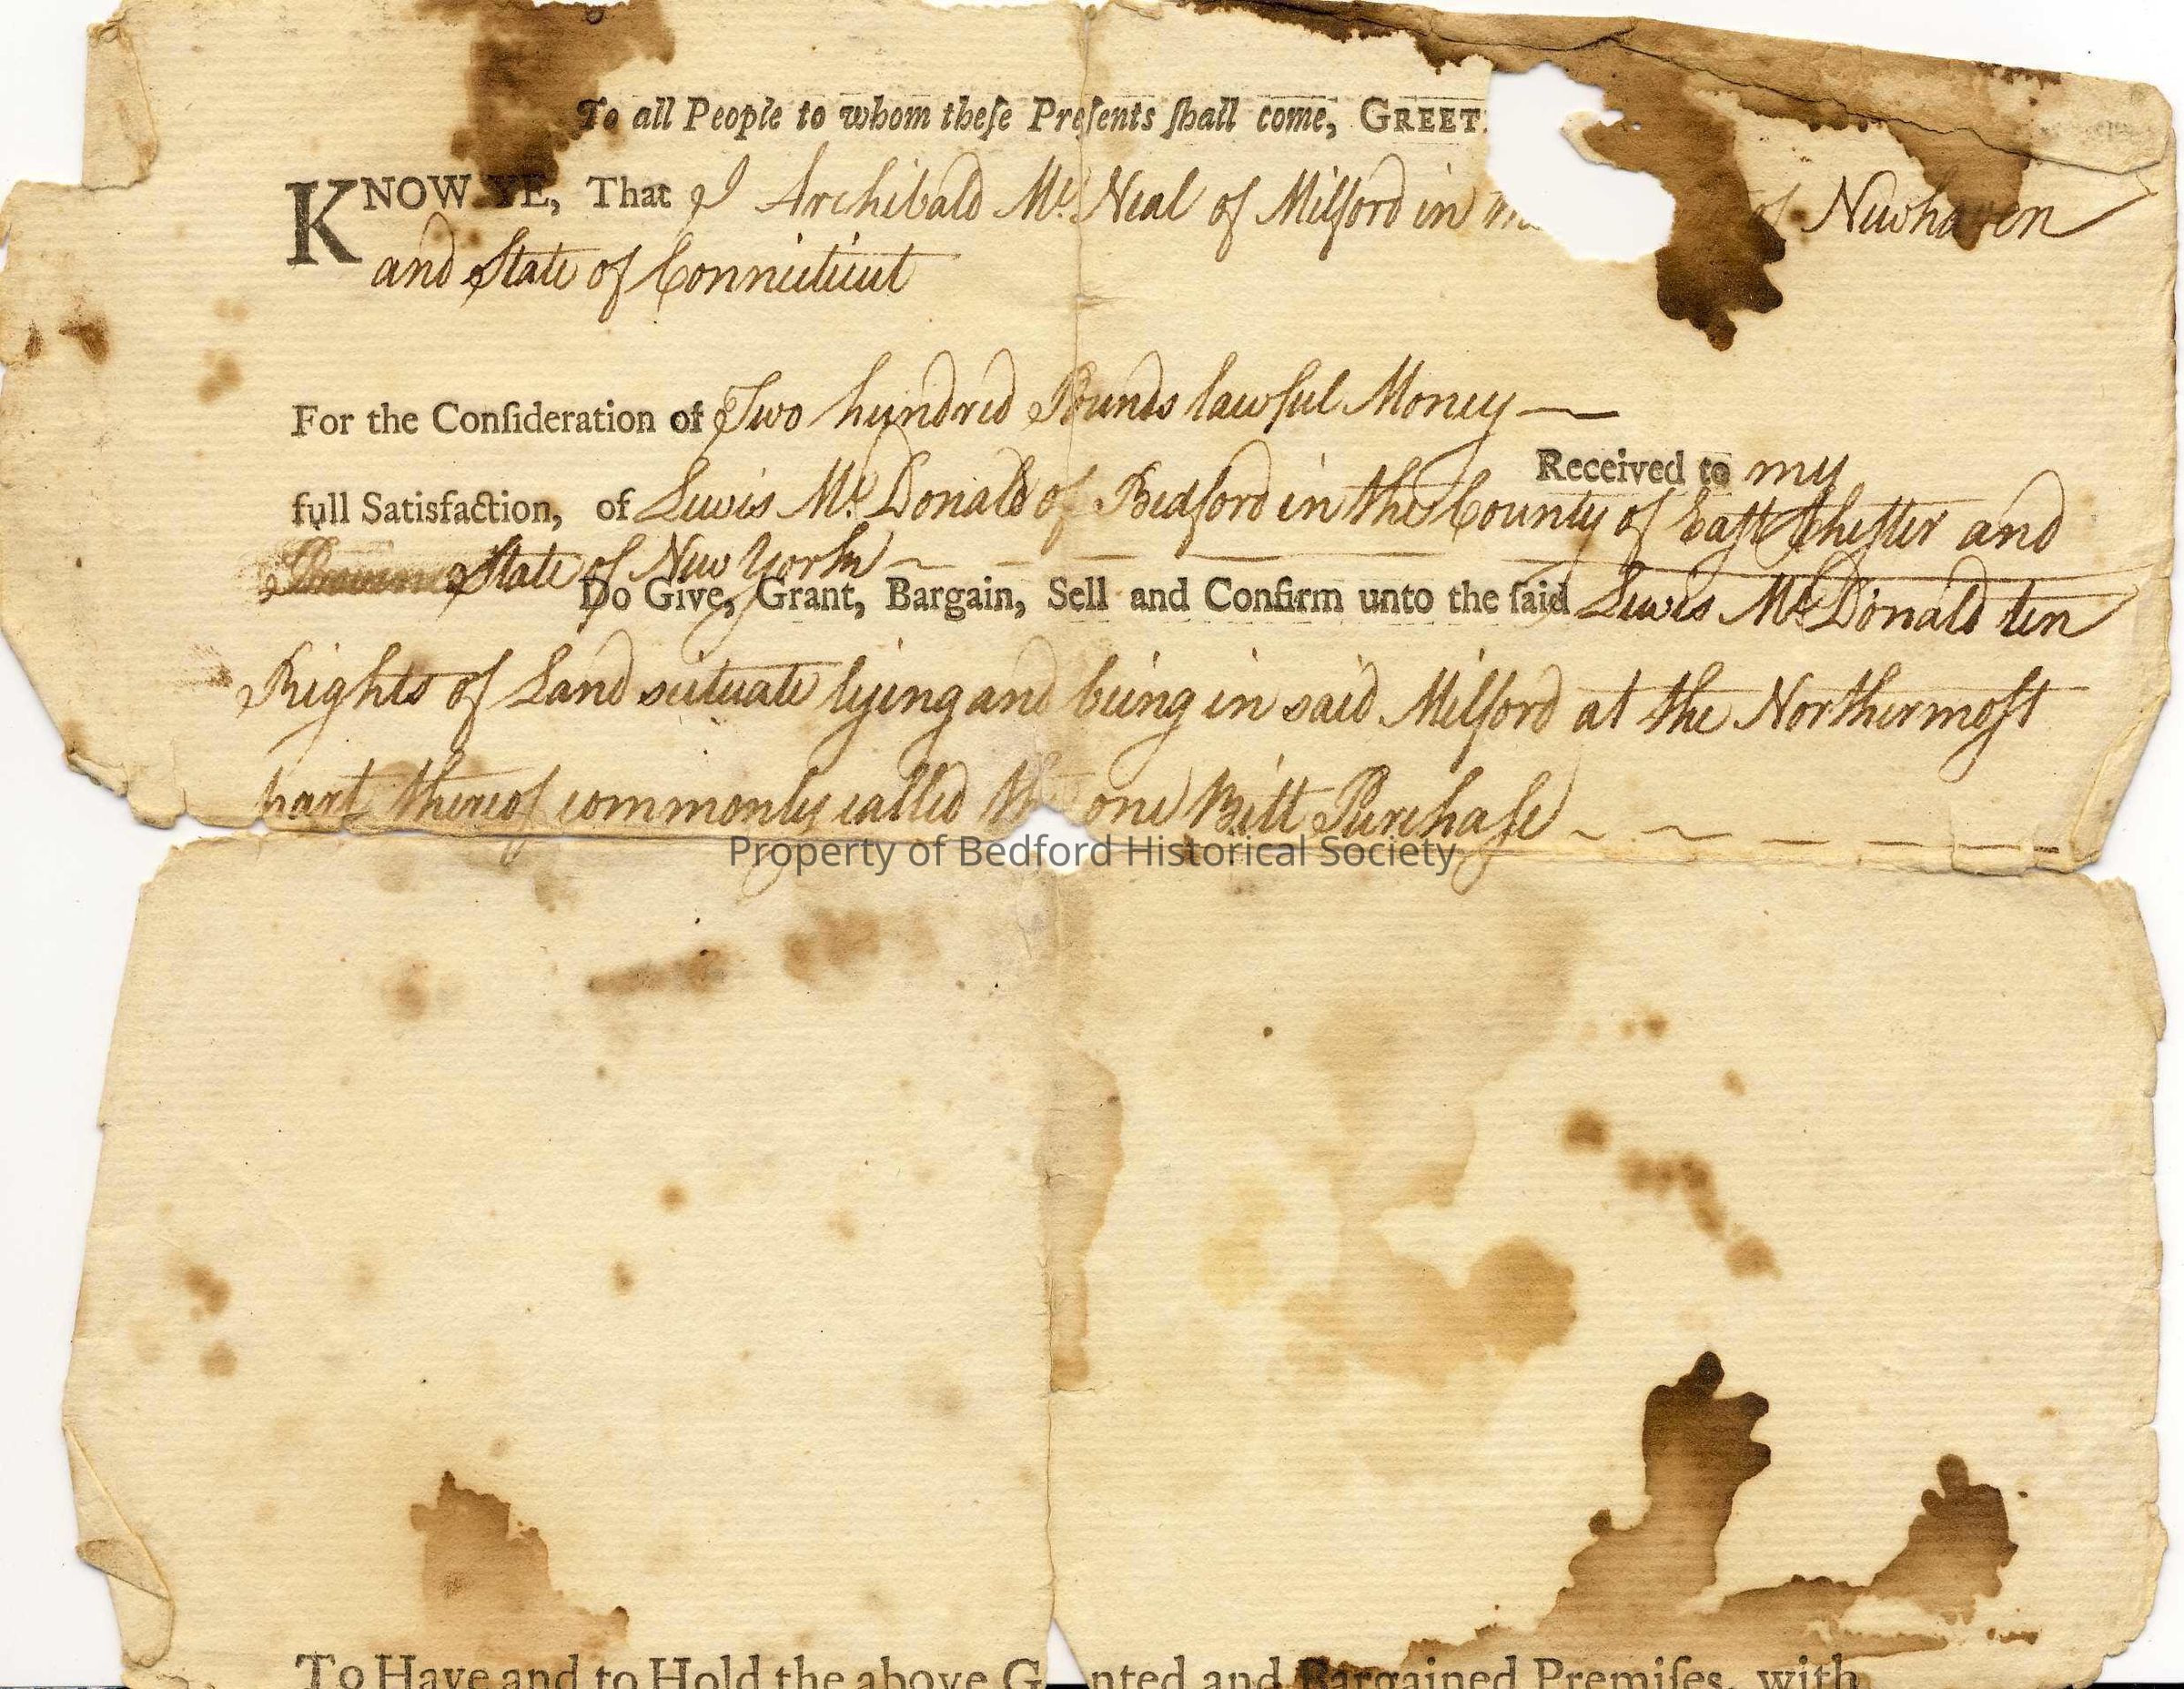 To all People to whom theſe Preſents ſhall come, GREET
KNOW YE, That I Archibald Mc. Neal of Milford in of Newhaven
and State of Connecticut
For the Conſideration of Two hundred Pounds lawful Money —
Received to my
full Satisfaction, of Lewis Mc. Donald of Bedford in the County of Eaſt Cheſter and
State of New York ~
Do Give, Grant, Bargain, Sell and Confirm unto the ſaid Lewis Mc Donald ten
Rights of Land scituate lying and being in said Milford at the Northermoſt
part thereof commonly called one Bitt Purchaſe ~ ~ — — —
Property of Bedford Historical Society
To Have and to Hold the above G nted and Bargained Premiſes, with